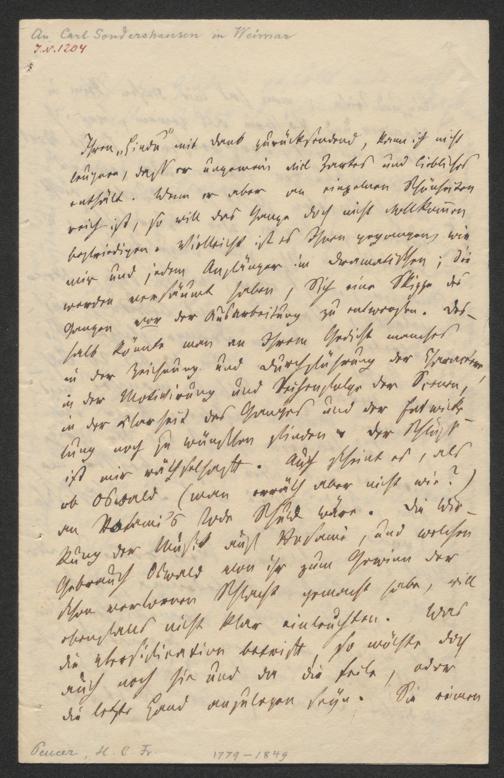 An Carl Sondershausen in Weimar
J.N. 1204
Ihren „Hindu" mit Dank zurücksendend, kann ich nicht
leugnen, daß er ungemein viel Zartes und Liebliches
enthält. Wenn er aber an einzelnen Schönheiten
reich ist, so will das Ganze doch nicht vollkommen
befriedigen. Vielleicht ist es Ihnen gegangen, wie
mir und jedem Anfänger im Dramatischen; Sie
werden versäumt haben, sich eine Skizze des
Ganzen vor der Ausarbeitung zu entwerfen. Des-
halb könnte man an Ihrem Gedicht manches
in der Zeichnung und Durchführung der Charactere,
in der Motivirung und Reihenfolge der Scenen,
in der Klarheit des Ganzes und der Entwicke-
lung noch zu wünschen finden. Der Schluß
ist mir räthselhaft. Auch scheint es, als
ob Oswald (man erräth aber nicht wie?)
an Tode Schuld wäre. Die Wir-
kung der Musik auf, und welchen
Gebrauch Oswald von ihr zum Gewinn der
schon verlornen Schlacht gemacht habe, will
ebenfalls nicht klar einleuchten. Was
die Versification betrifft, so möchte doch
auch noch hie und da die Feile, oder
die letzte Hand anzulegen seyn. Sie einen
Peucer, H. C. Fr. 1779-1849